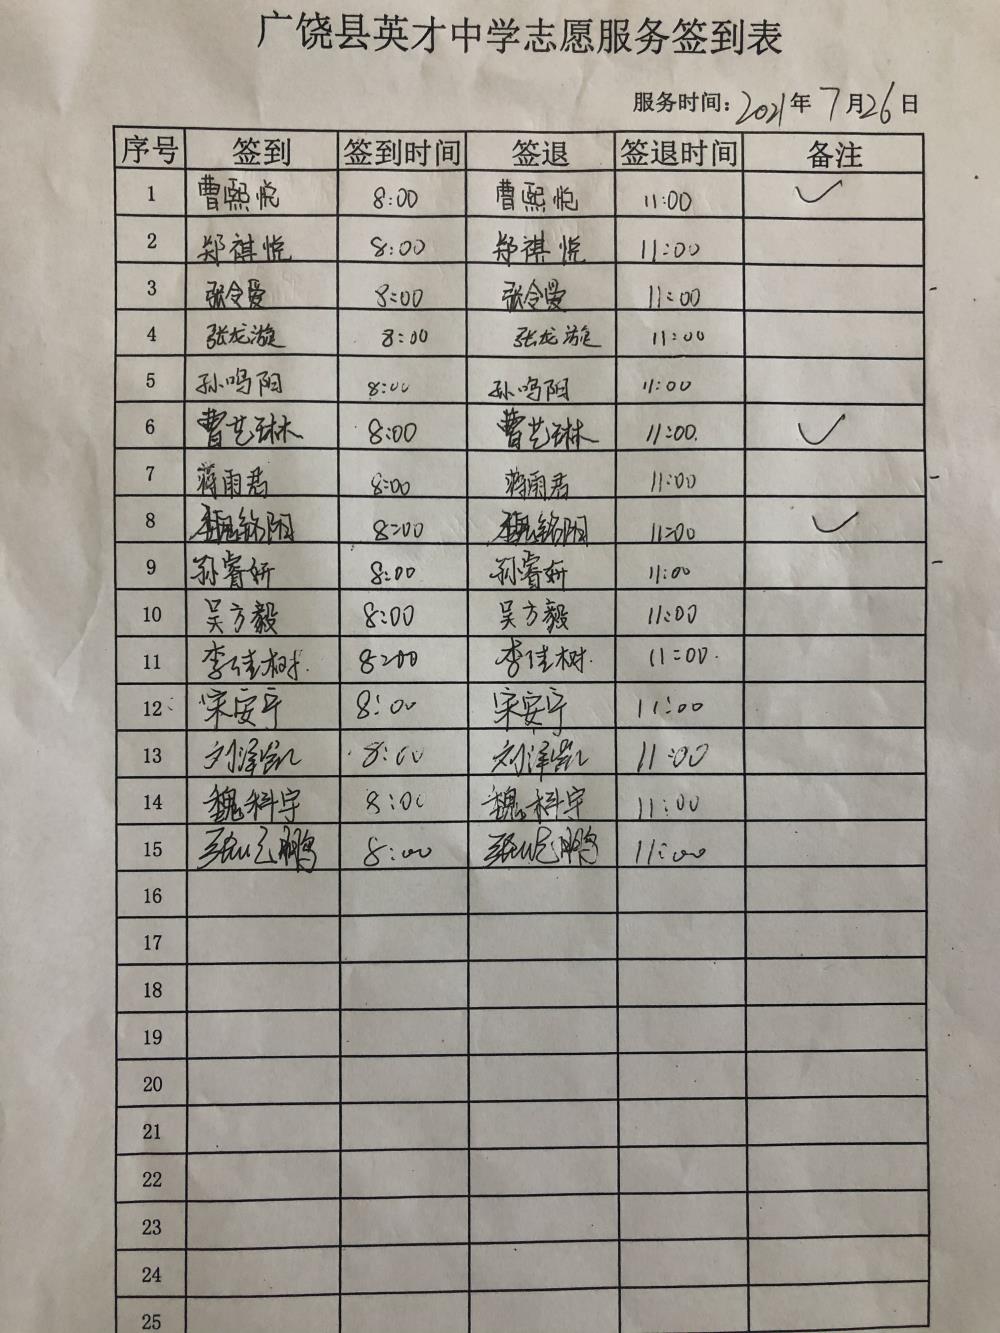 广饶县英才中学志愿服务签到表
服务时间：2021年7月26日
序号 签到 签到时间 签退 签退时间 备注
1 曹熙悦 8:00 曹熙悦 11:00 ✓
2 郑祺悦 8:00 郑祺悦 11:00
3 张令爱 8:00 张令爱 11:00
4 张龙漩 8:00 张龙漩 11:00
5 孙鸣阳 8:00 孙鸣阳 11:00
6 曹艺琳 8:00 曹艺琳 11:00. ✓
7 蒋雨君 8:00 蒋雨君 11:00
8 魏铭阳 8:00 魏铭阳 11:00 ✓
9 孙睿妍 8:00 孙睿妍 11:00
10 吴方毅 8:00 吴方毅 11:00
11 李佳树. 8:00 李佳树. 11:00.
12 宋安宁 8:00 宋安宁 11:00
13 刘泽凯 8:00 刘泽凯 11:00
14 魏科宇 8:00 魏科宇 11:00
15 8:00 11:00
16
17
18
19
20
21
22
23
24
25